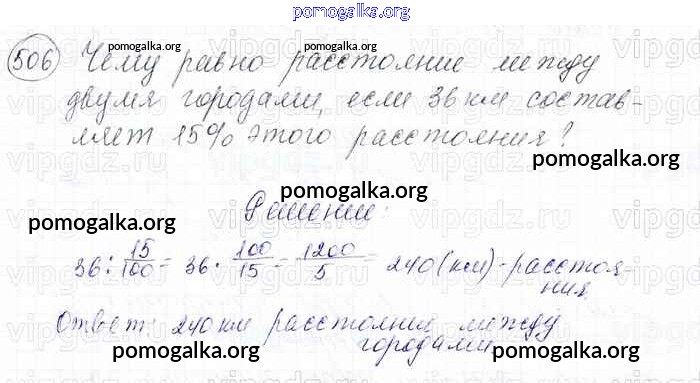 pomogalka.org
pomogalka.org pomogalka.org
506 Чему равно расстояние между
двумя городами, если 36 км состав-
ляет 15% этого расстояния?
pomogalka.org
pomogalka.org
Решение:
pomogalka.org pomogalka.org
36 : 15/100 = 36 · 100/15 = 1200/5 = 240 (км) - расстоя-
ния
Ответ: 240 км расстояние между
городами
pomogalka.org pomogalka.org pomogalka.org